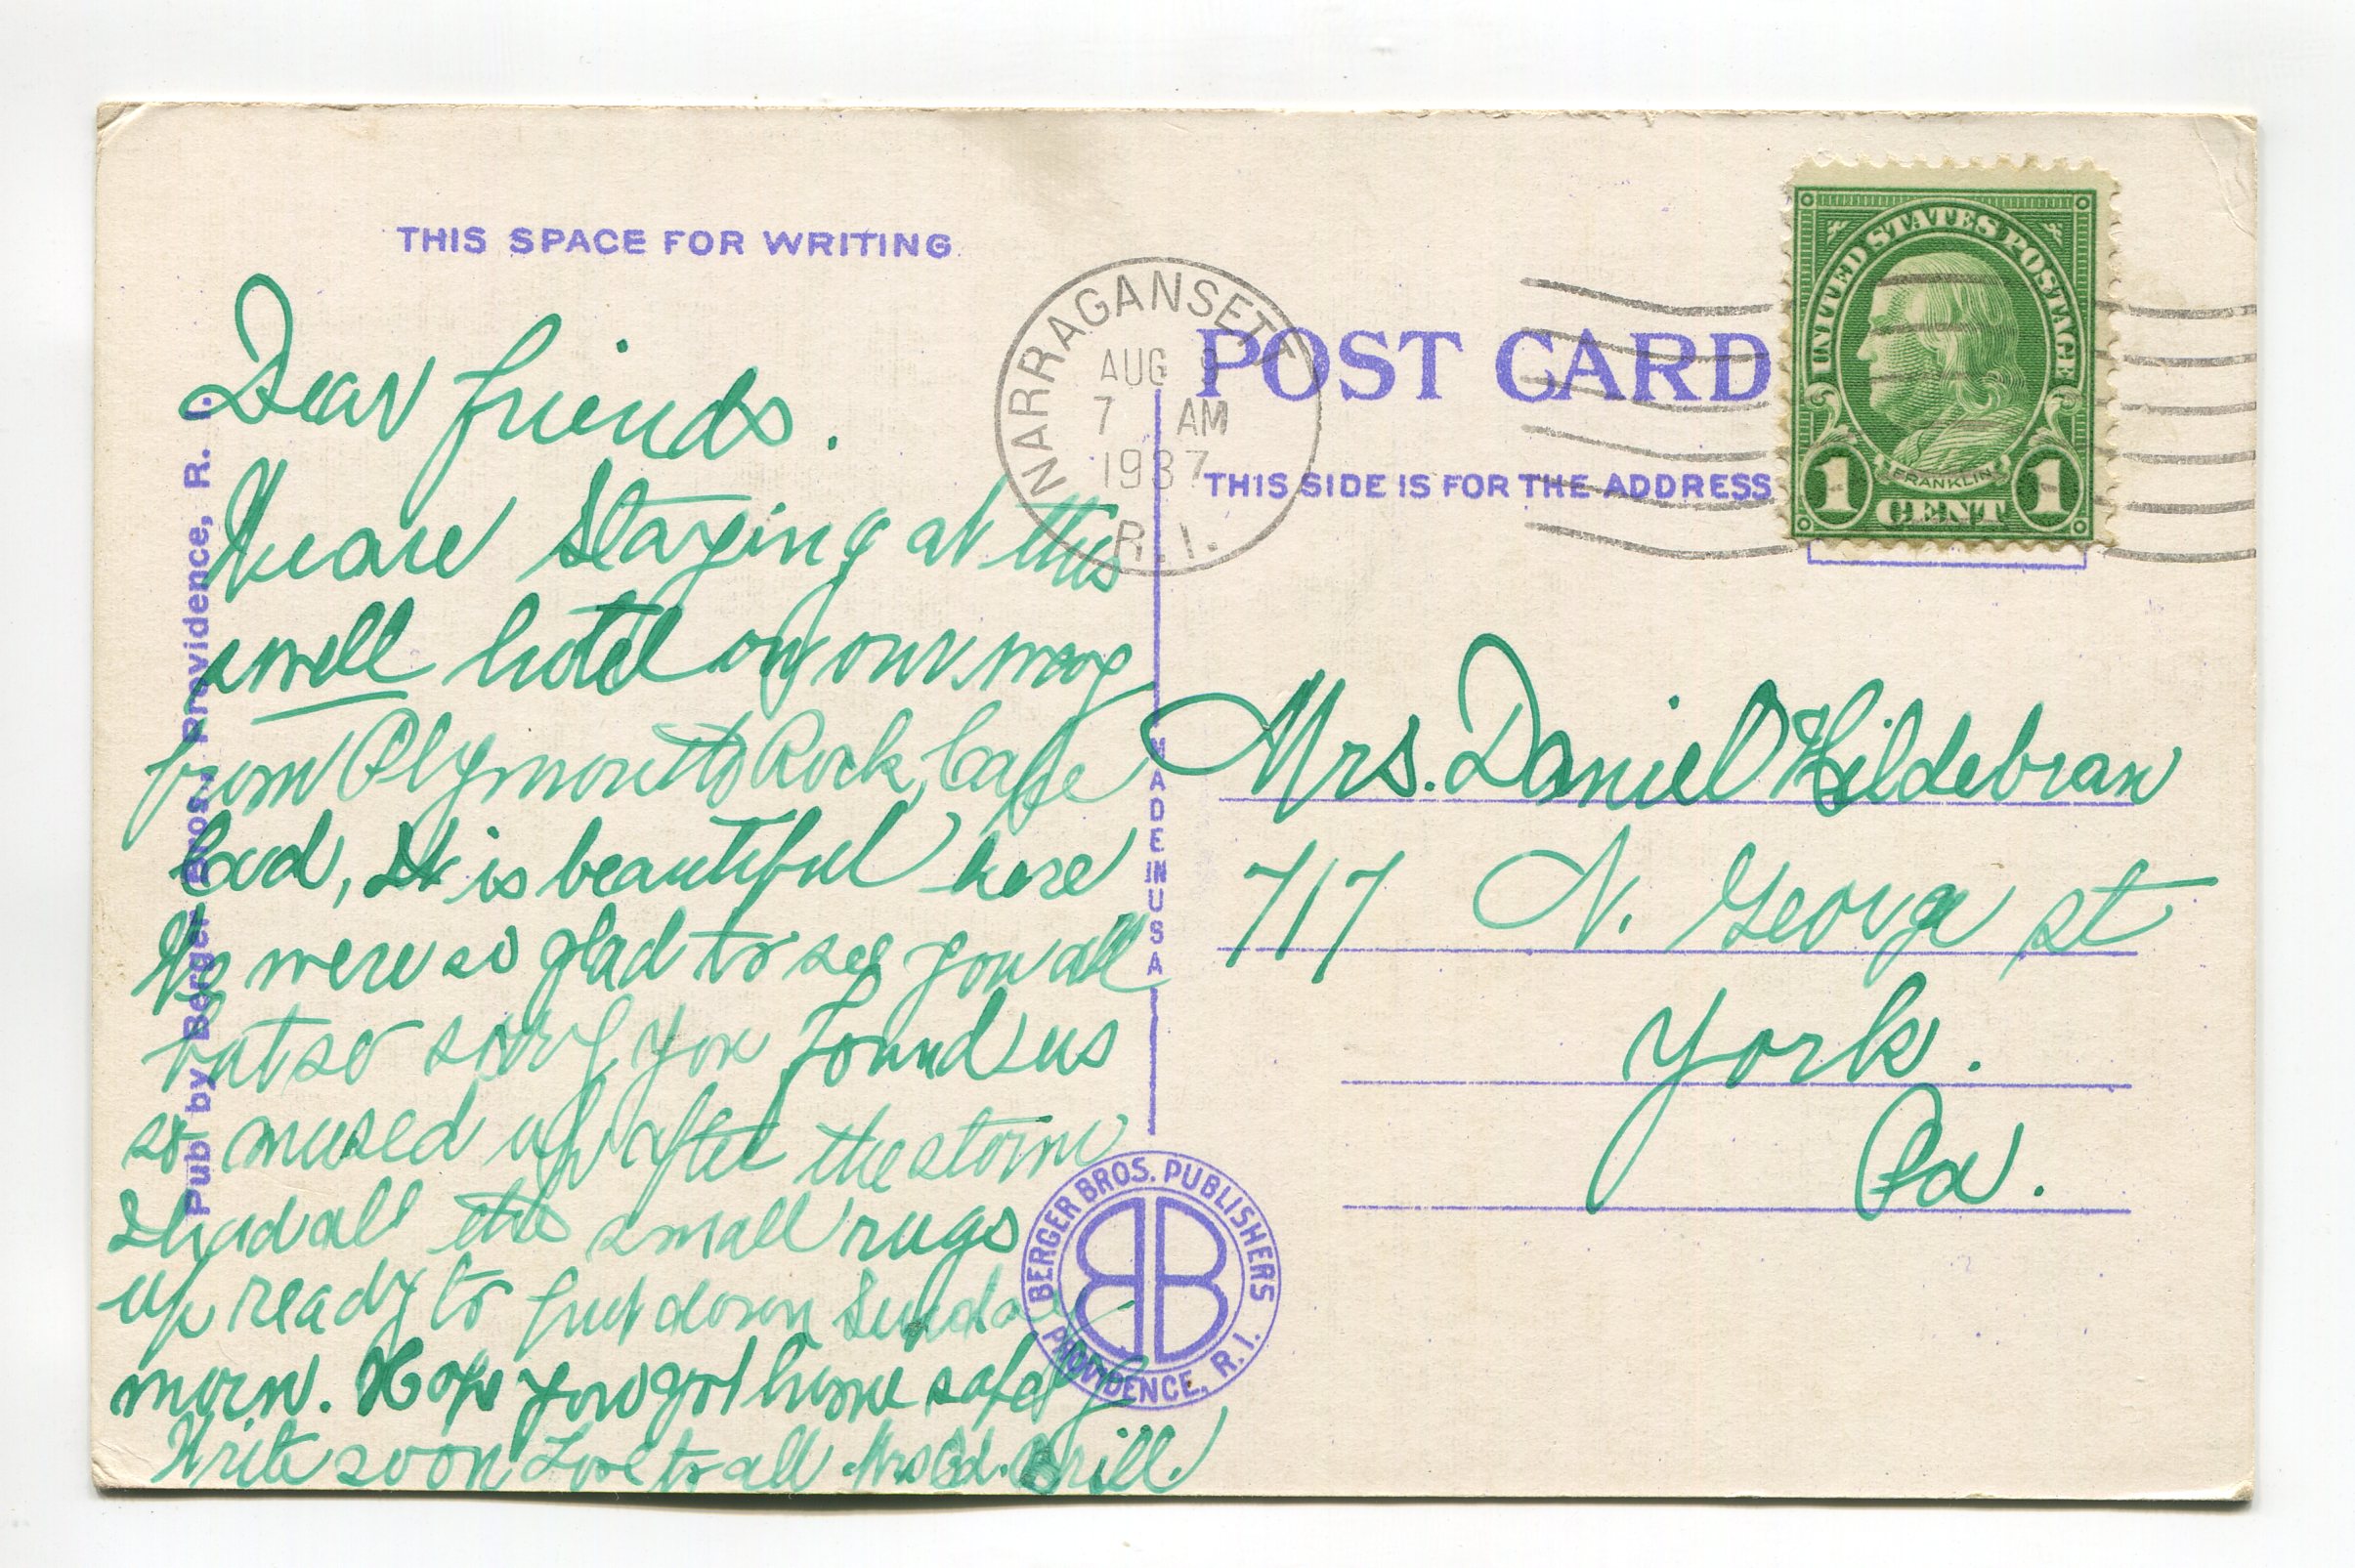 THIS SPACE FOR WRITING
Dear friends.
We are Staying at this
swell hotel on our way
from Plymouth Rock, Cape
Cod, It is beautiful here
We were so glad to see you all
but so sorry you found us
so mused up after the storm
I had all the small rugs
up ready to put down Sunday
morn. Hope you got home safely
Write soon Love to all Mrs Ed. Brill.
Pub. by Berger Bros., Providence, R. I.
NARRAGANSETT
AUG 9
7 AM
1937
R.I.
POST CARD
THIS SIDE IS FOR THE ADDRESS
UNITED STATES POSTAGE
FRANKLIN
1 CENT 1
MADE IN USA
Mrs. Daniel Hildebran
717 N. George st
York.
Pa.
BERGER BROS. PUBLISHERS
BB
PROVIDENCE, R. I.